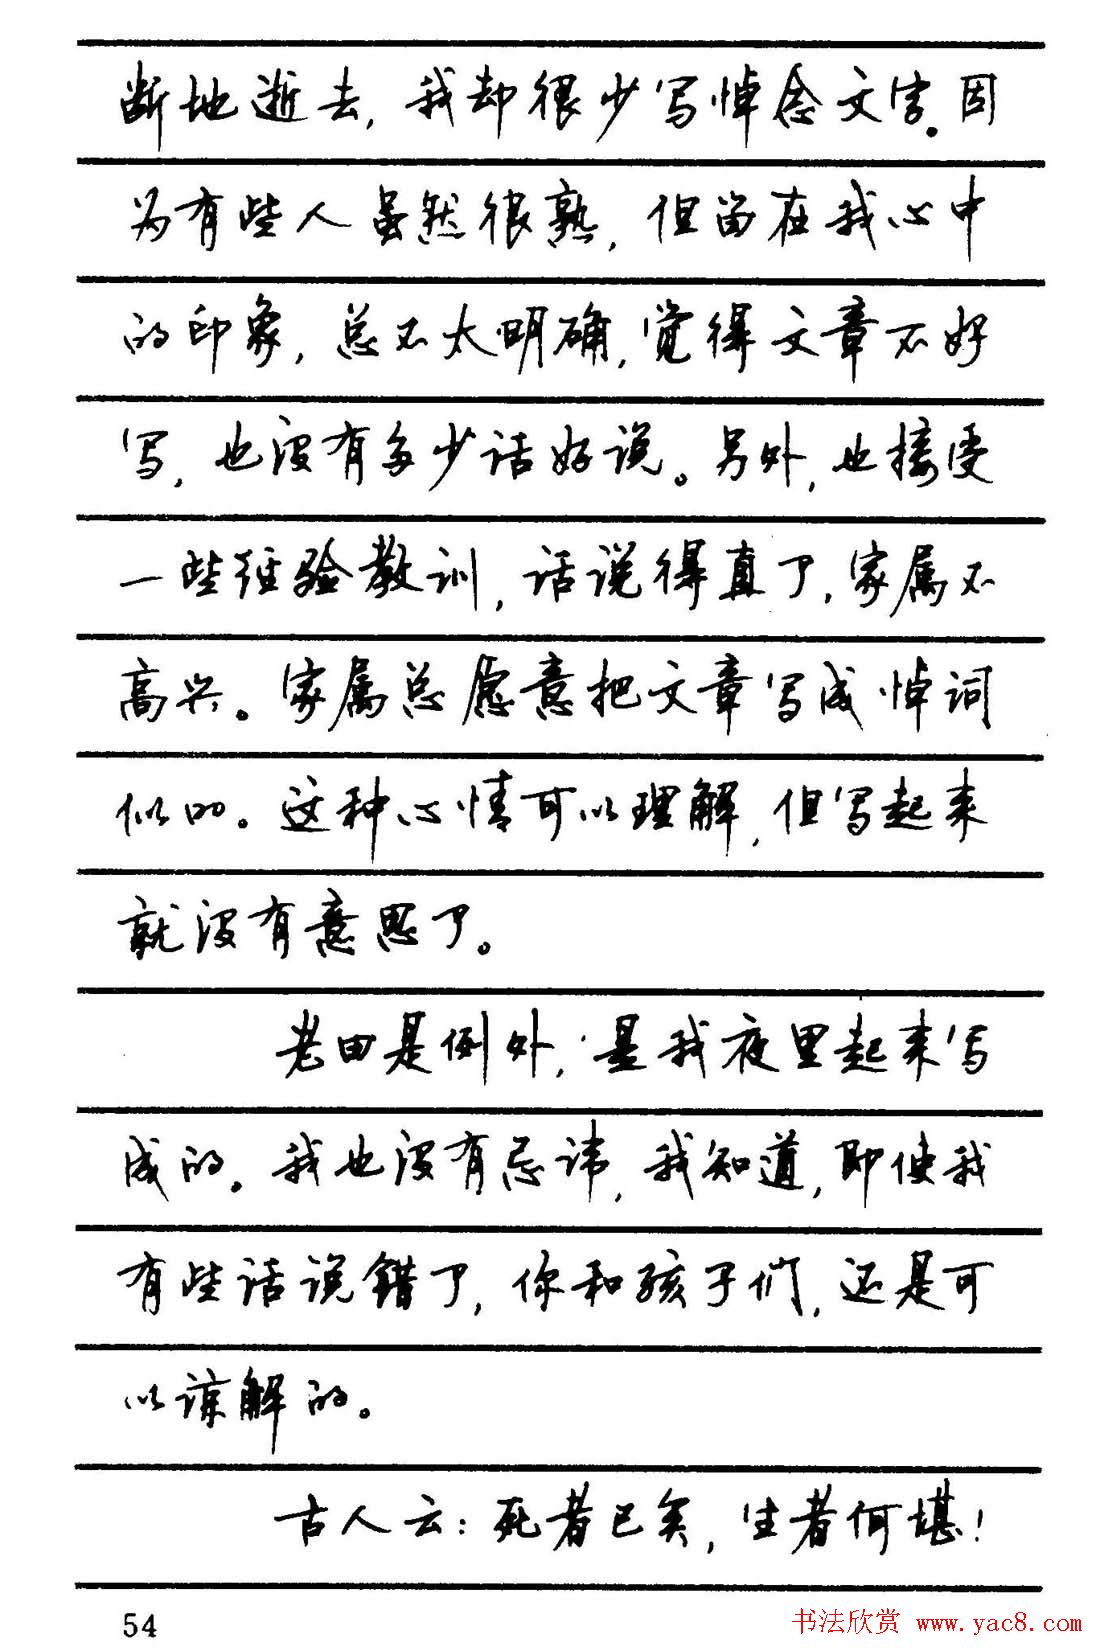 断地逝去,我却很少写悼念文字。因
为有些人虽然很熟,但留在我心中
的印象,总不太明确,觉得文章不好
写,也没有多少话好说。另外,也接受
一些经验教训,话说得真了,家属不
高兴。家属总愿意把文章写成悼词
似的。这种心情可以理解,但写起来
就没有意思了。
老田是例外,是我夜里起来写
成的。我也没有忌讳,我知道,即使我
有些话说错了,你和孩子们,还是可
以谅解的。
古人云:死者已矣,生者何堪!
54
书法欣赏 www.yac8.com